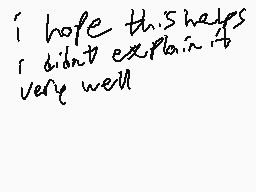 i hope this helps
i didnt explain it
very well